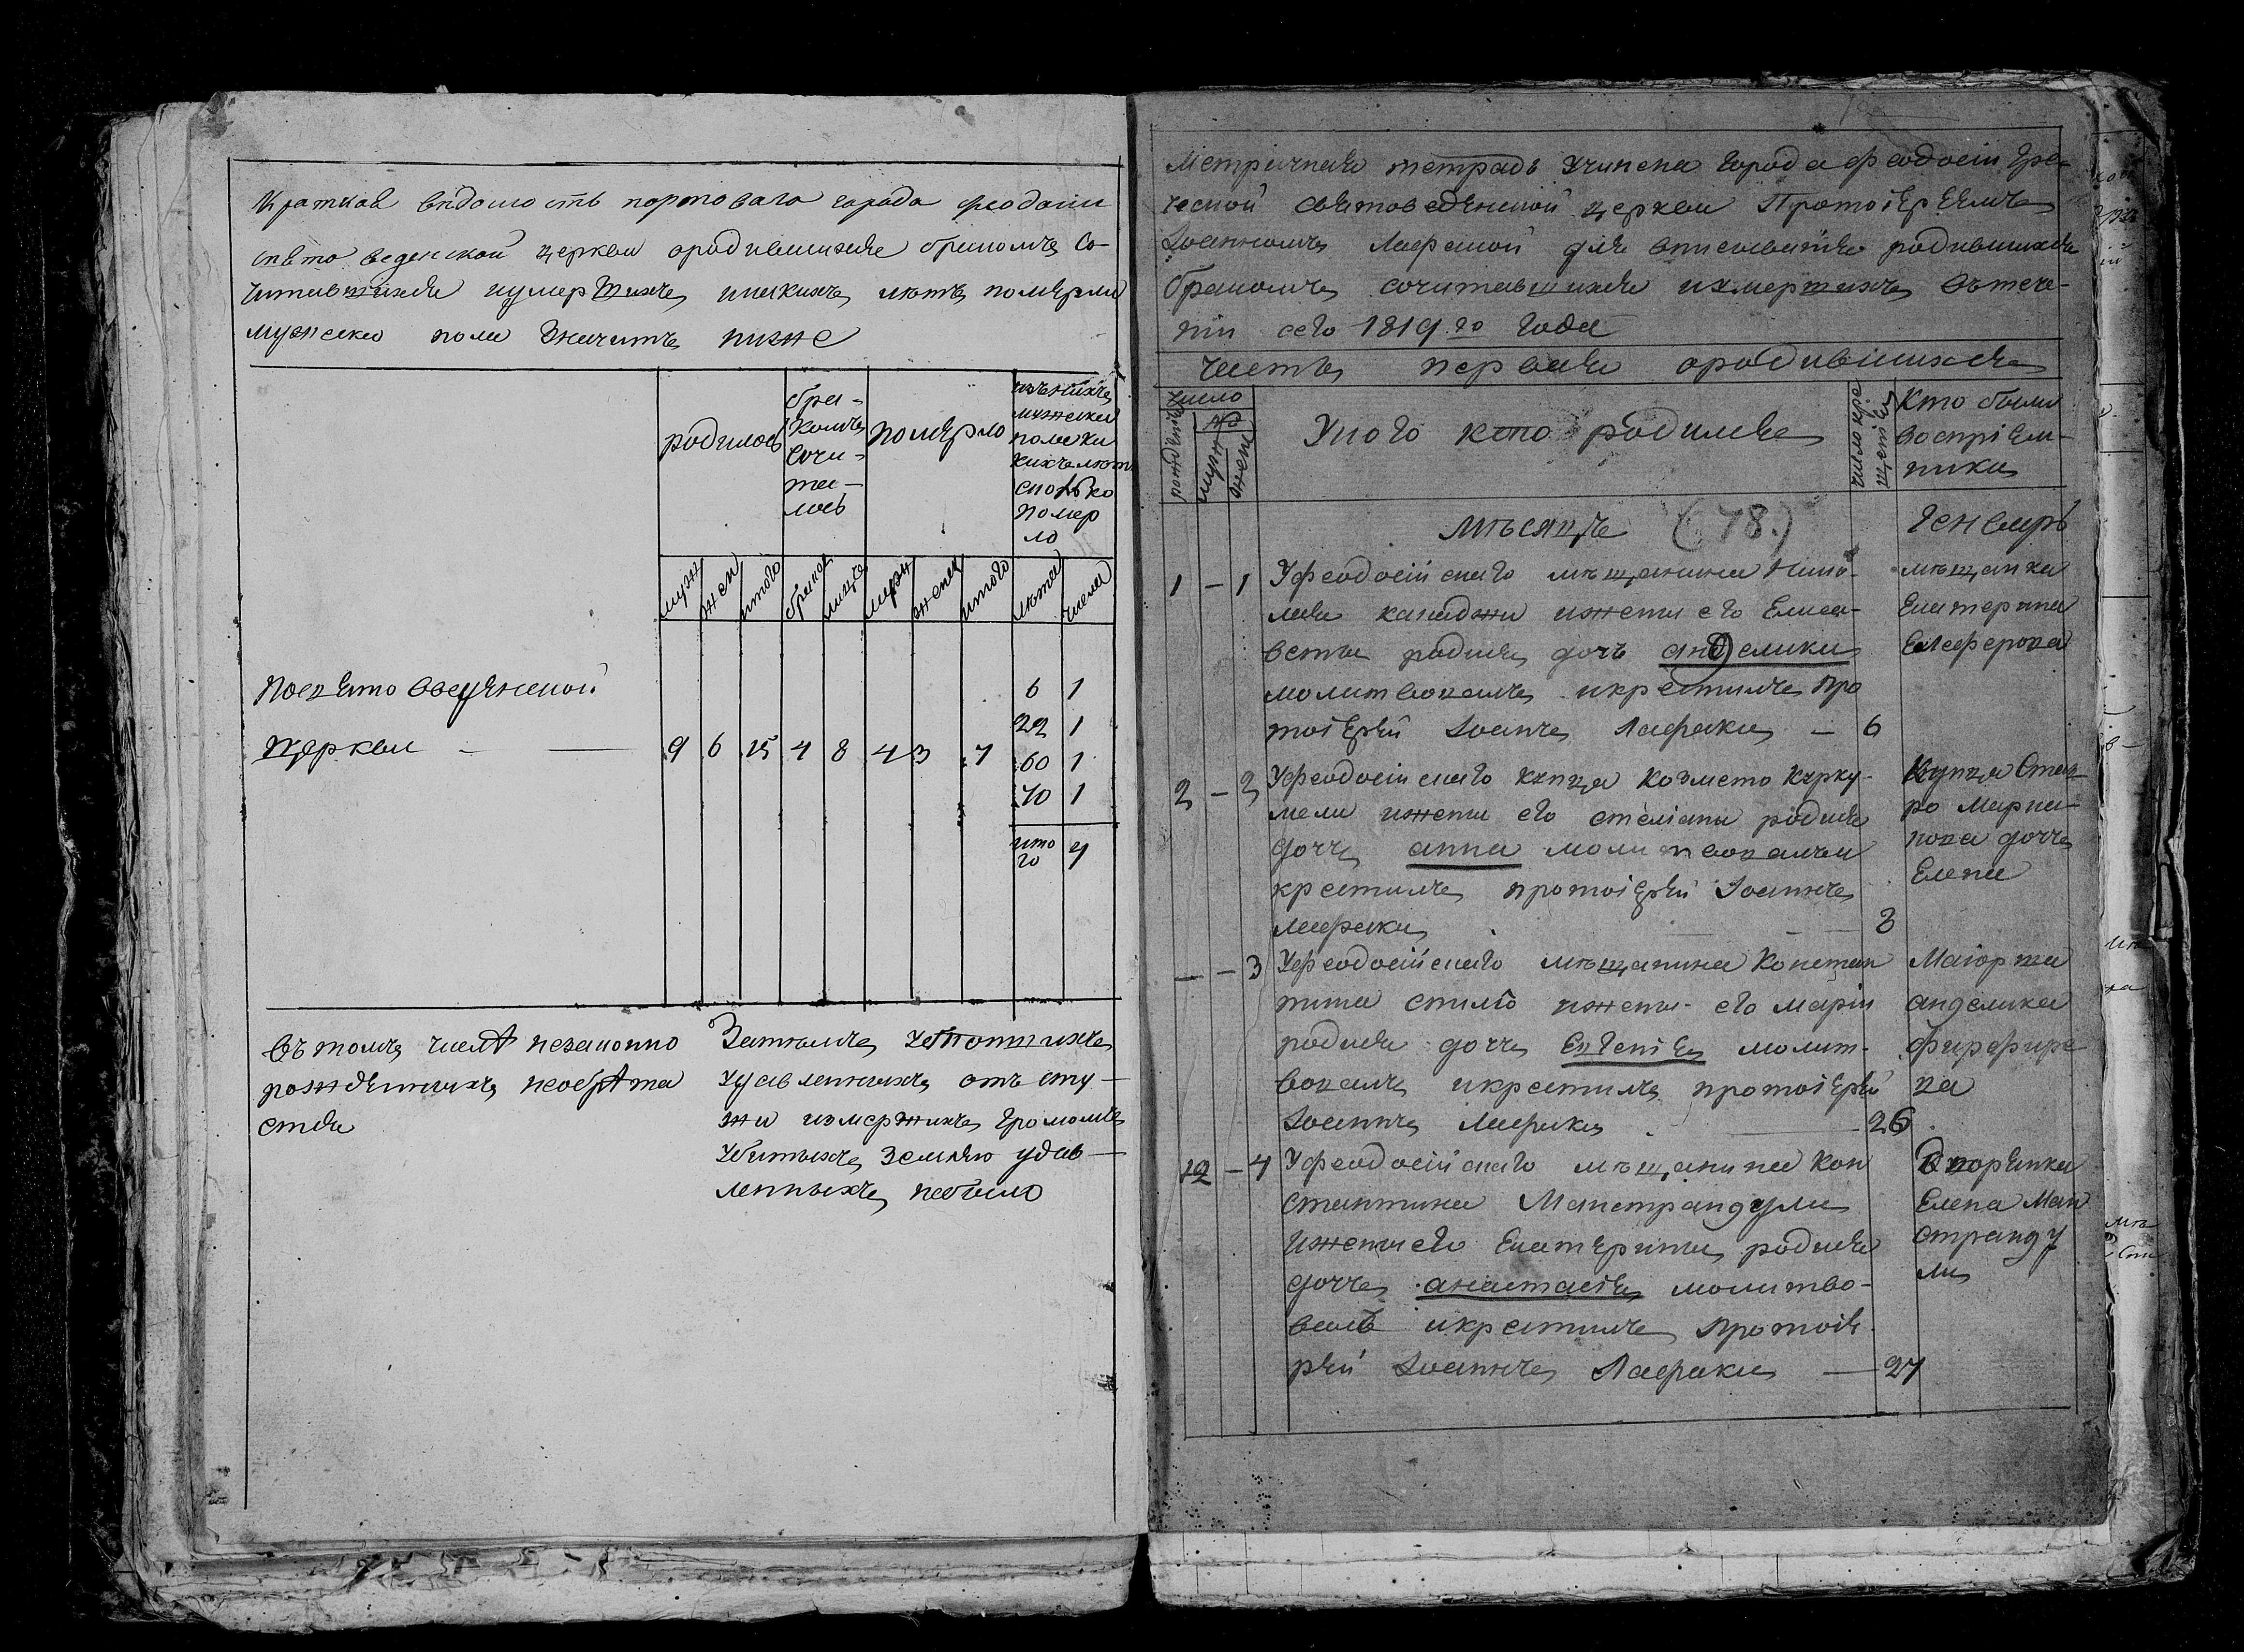 Краткая вѣдомость портоваго города Феодосіи
святовведенской церкви ородившихся бракомъ Со-
читавшихся иумершихъ иисакихъ лѣтъ померли
мужеска пола Значитъ ниже
родилось
бра-
комъ
Сочи-
та-
лось
померло
изънихъ
мужеска
пола ка
кихълѣтъ
сколько
помер
ло
муж
жен
итого
браков
лицъ
муж
жен
итого
лѣта
числа
Посвято Введенской
Церкви
9 6 15 4 8 4 3 7
6 1
22 1
60 1
70 1
ито
го 4
Въ томъ числѣ незаконно
рожденныхъ необрѣта
ется
Затѣмъ Утопшихъ
Удавленныхъ отъ сту-
жи измерзшихъ Громомъ
Убитыхъ Землею удав-
ленныхъ небыло
Метричная тетрадь Учинена города Феодосіи Гре-
ческой святовведенской церкви Протоіереемъ
Іоанномъ Лафакой для вписыванія родившихся
бракомъ сочитавшихся иумершихъ въ тече-
ніи сего 1819го Года
часть первая ородившихся
число
рожденія
№
муж
жен
Укого кто родился
число кре
щенія
Кто были
воспріем-
ники
мѣсяцъ (78.) Генварь
1 - 1 Уфеодосійскаго мѣщанина Нико-
лая канаджи ижены его Елиса-
веты родися дочь анделика
молитвовалъ икрестилъ про
тоіерей Іоаннъ Лафаки — 6
мѣщанка
Екатерина
Елеферова
2 - 2 Уфеодосійскаго купца Козмето курку-
мели ижены его стеліани родися
дочъ анна молитвовалъ и
крестилъ протоіерей Іоаннъ
лафаки 3
Купца Став
ро Марка-
нова дочъ
Елена
- - 3 Уфеодосійскаго мѣщанина Констан
тина стиліо ижены его маріи
родися дочъ Евгеніе молит-
вовалъ икрестилъ протоіерей
Іоаннъ Лафаки 26
Маіорша
анделика
фирфире
ва
12 - 4 Уфеодосійскаго мѣщанина Кон
стантина Манстрандули
ижены его Екатерины родися
дочъ анастасіе молитво-
валъ икрестилъ Протоіе
рей Іоаннъ Лафаки — 27
Дворянка
Елена Ман
странду
ли